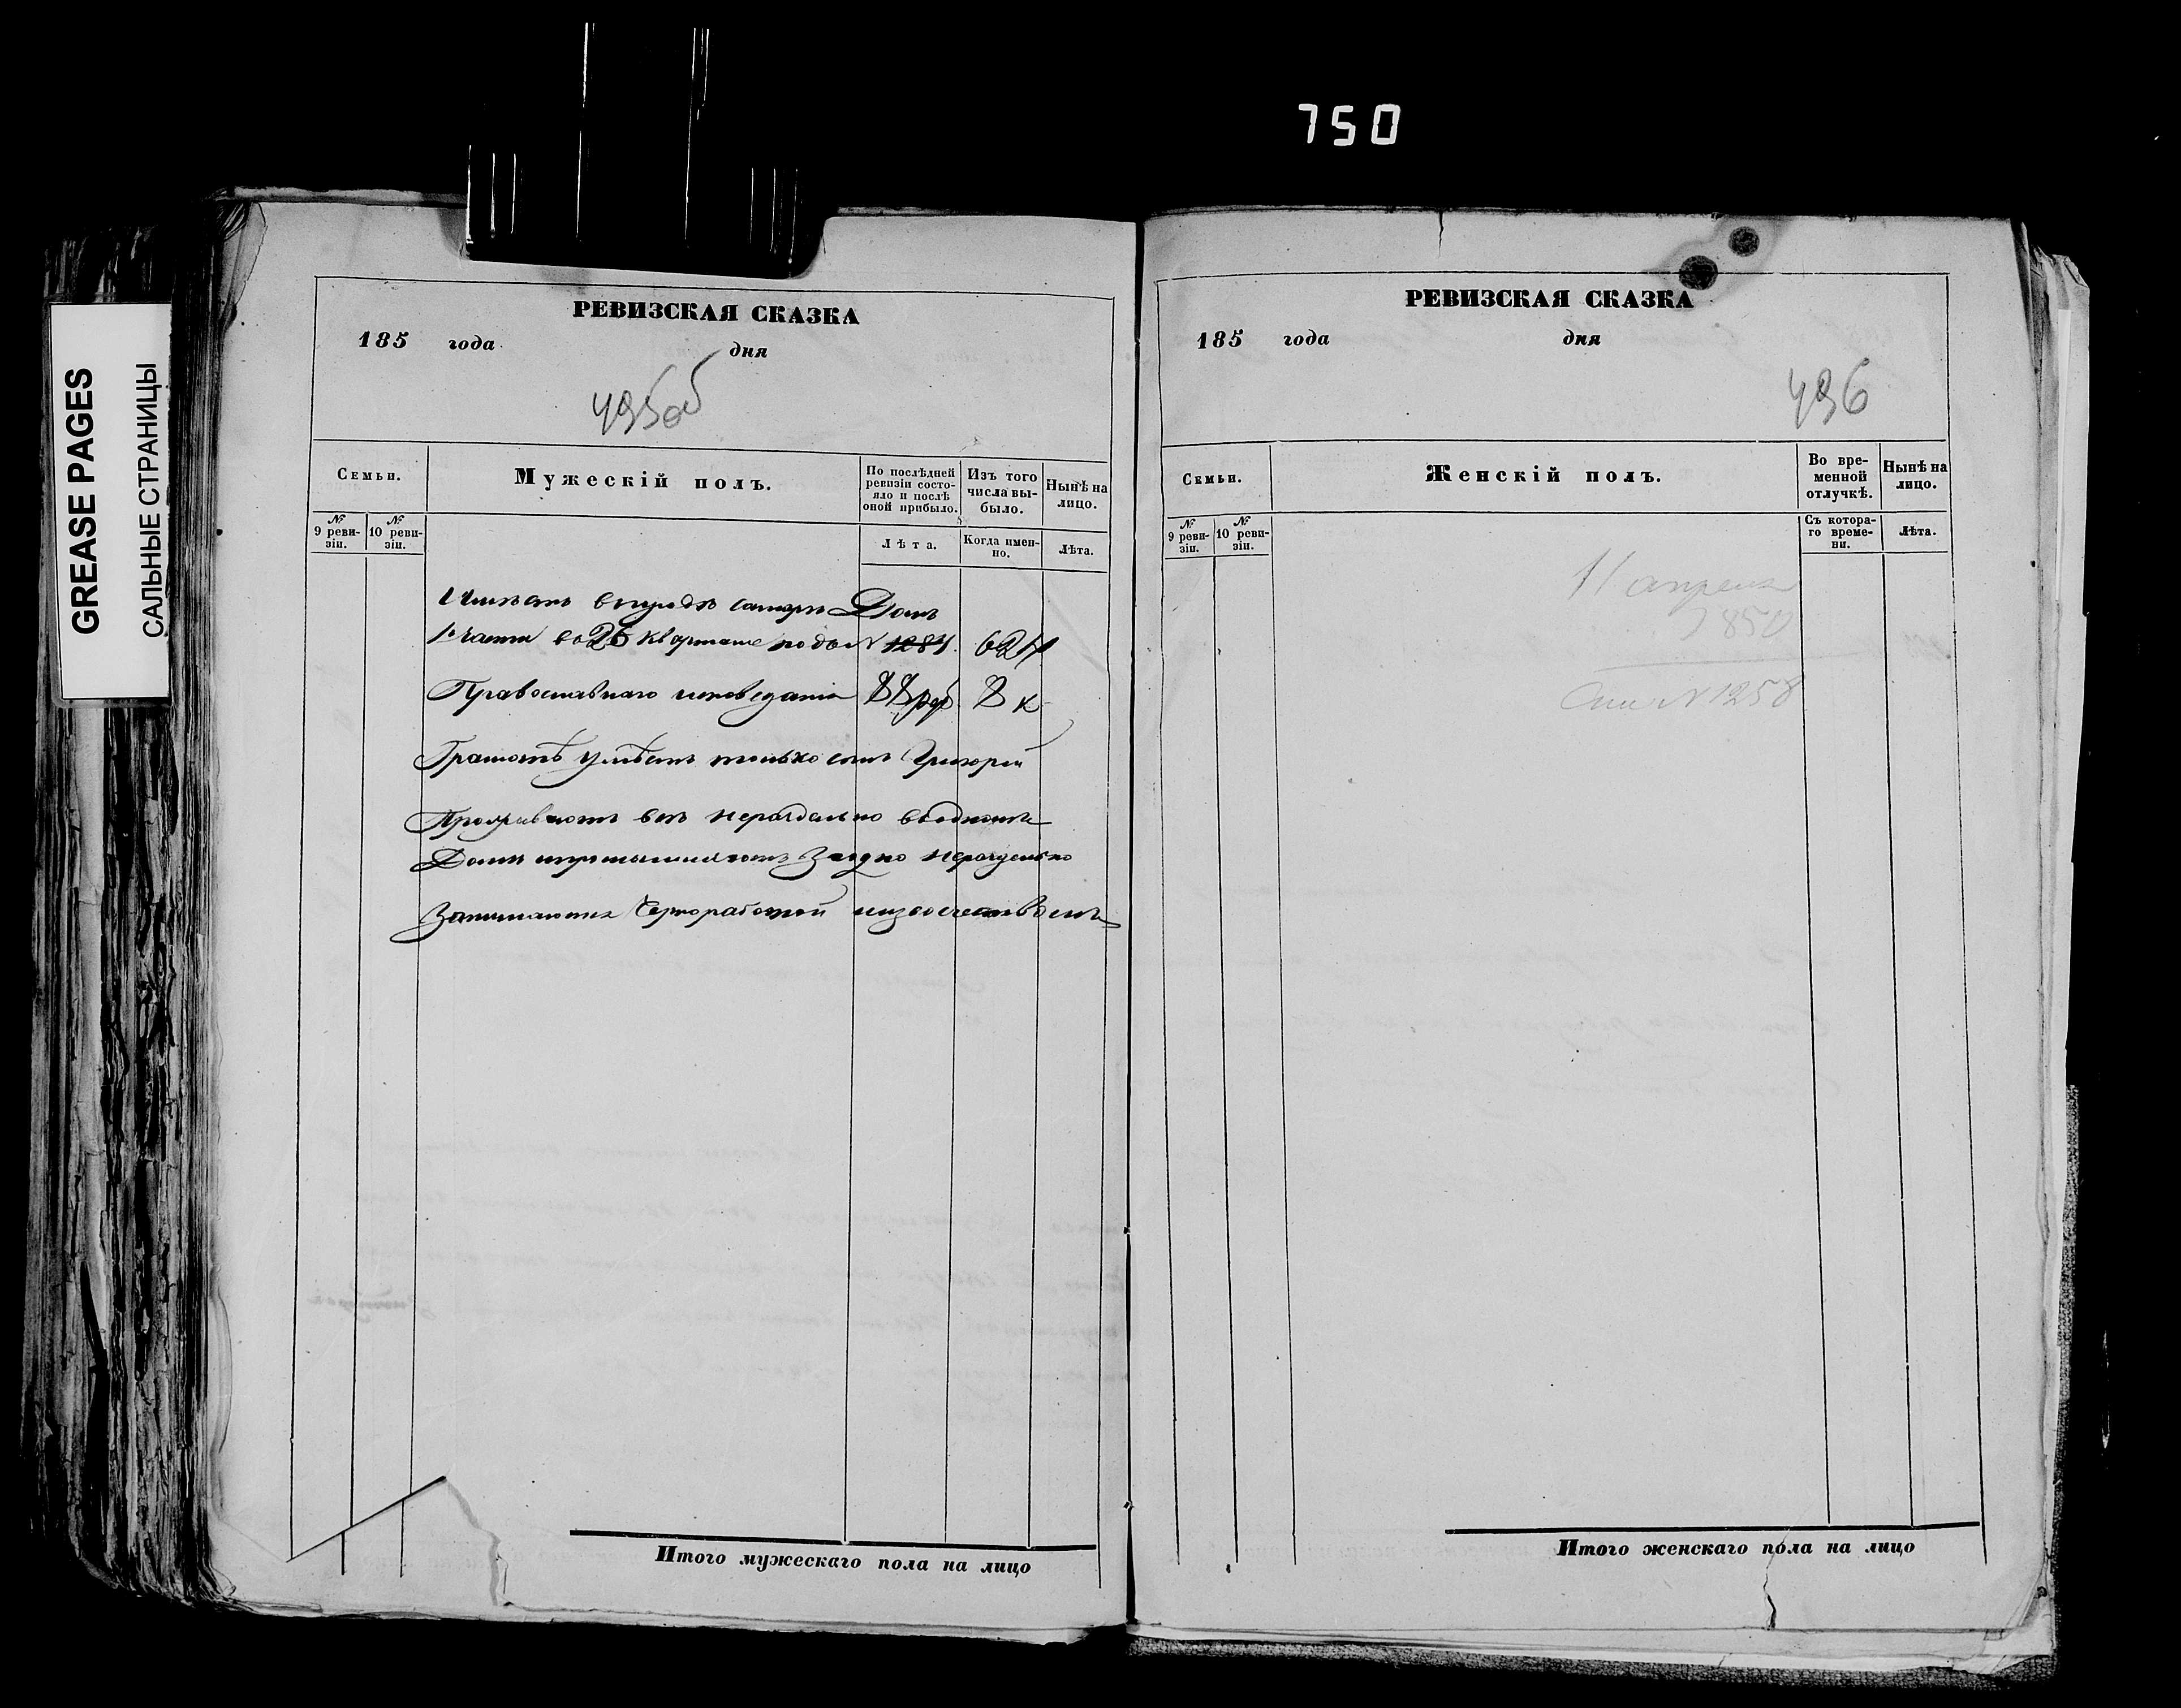 750
GREASE PAGES
САЛЬНЫЕ СТРАНИЦЫ
РЕВИЗСКАЯ СКАЗКА
185 года дня
495об
Семьи.
Мужескій полъ.
По послѣдней ревизіи состояло и послѣ оной прибыло.
Изъ того числа выбыло.
Нынѣ на лицо.
№ 9 ревизіи.
№ 10 ревизіи.
Лѣта.
Когда именно.
Лѣта.
Имѣетъ въ городѣ Самарѣ Домъ
1й части во 26 кварталѣ подъ № 1284 624
Православнаго исповеданія 88 руб 8 к
Грамотѣ умѣетъ только сынъ Григорій
Проживаютъ все нераздельно въ одномъ
Доме и промышляютъ заодно нераздельно
Занимаются Черноработой и извозчествомъ
РЕВИЗСКАЯ СКАЗКА
185 года дня
496
Семьи.
Женскій полъ.
Во временной отлучкѣ.
Нынѣ на лицо.
№ 9 ревизіи.
№ 10 ревизіи.
Съ котораго времени.
Лѣта.
11 апреля
1850
№ 1258
Итого мужескаго пола на лицо
Итого женскаго пола на лицо